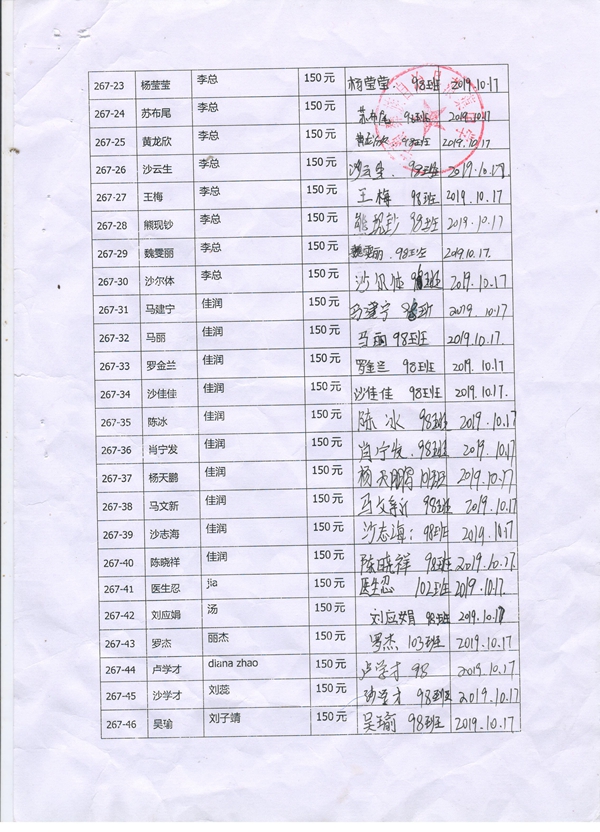 267-23 杨莹莹 李总 150元 杨莹莹. 98班 2019.10.17
267-24 苏布尾 李总 150元 苏布尾 98班 2019.10.17
267-25 黄龙欣 李总 150元 黄龙欣 98班 2019.10.17
267-26 沙云生 李总 150元 沙云生. 98班 2019.10.17
267-27 王梅 李总 150元 王梅 98班 2019.10.17
267-28 熊现钞 李总 150元 熊现钞 98班 2019.10.17
267-29 魏雯丽 李总 150元 魏雯丽.98班 2019.10.17.
267-30 沙尔体 李总 150元 沙尔体 98班 2019.10.17.
267-31 马建宁 佳润 150元 马建宁 98班 2019.10.17
267-32 马丽 佳润 150元 马丽 98班 2019.10.17.
267-33 罗金兰 佳润 150元 罗金兰 98班 2019.10.17.
267-34 沙佳佳 佳润 150元 沙佳佳 98班 2019.10.17.
267-35 陈冰 佳润 150元 陈冰 98班 2019.10.17
267-36 肖宁发 佳润 150元 肖宁发.98班 2019.10.17
267-37 杨天鹏 佳润 150元 杨天鹏 101班 2019.10.17
267-38 马文新 佳润 150元 马文新 98班 2019.10.17
267-39 沙志海 佳润 150元 沙志海: 98班 2019.10.17
267-40 陈晓祥 佳润 150元 陈晓祥 98班 2019.10.17.
267-41 医生忍 jia 150元 医生忍 102班 2019.10.17.
267-42 刘应娟 汤 150元 刘应娟 98班 2019.10.17
267-43 罗杰 丽杰 150元 罗杰 103班 2019.10.17
267-44 卢学才 diana zhao 150元 卢学才 98 2019.10.17
267-45 沙学才 刘蕊 150元 沙学才 98班 2019.10.17
267-46 吴瑜 刘子靖 150元 吴瑜 98班 2019.10.17